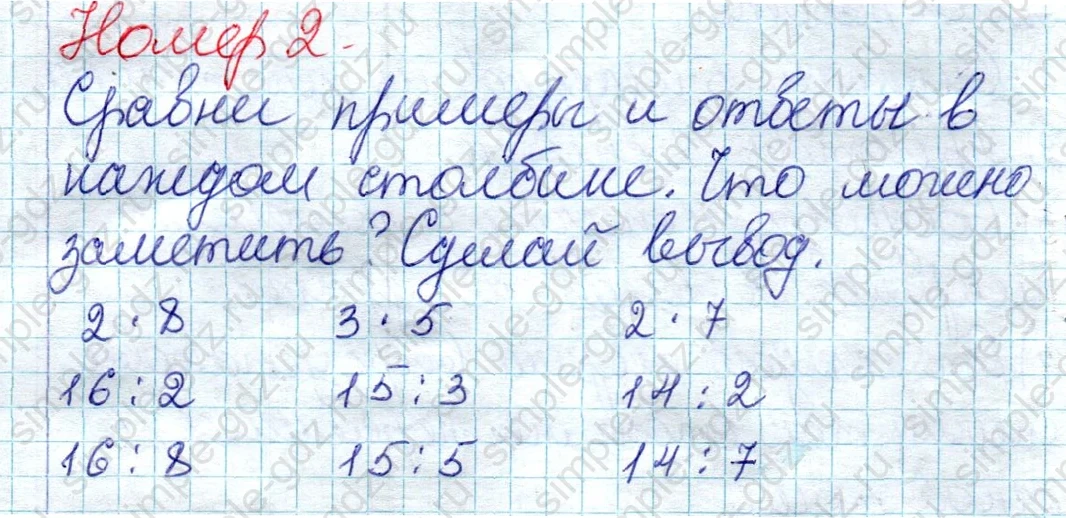 Номер 2.
Сравни примеры и ответы в
каждом столбике. Что можно
заметить? Сделай вывод.
2 · 8 3 · 5 2 · 7
16 : 2 15 : 3 14 : 2
16 : 8 15 : 5 14 : 7
simple-gdz.ru